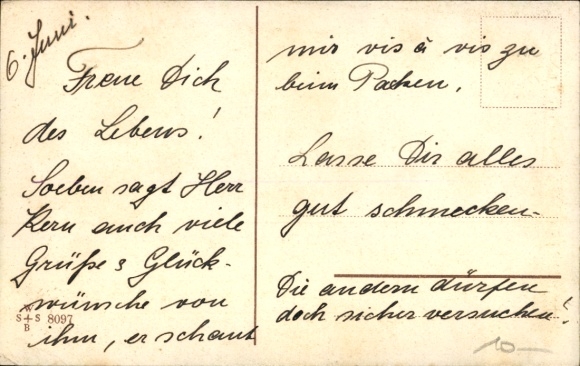 6. Juni.
Freue Dich
des Lebens!
Soeben sagt Herr
Kern auch viele
Grüße & Glück-
wünsche von
ihm, er schaut
mir vis à vis zu
beim Packen.
Lasse Dir alles
gut schmecken-
Die andern dürfen
doch sicher versuchen!
W
S+S 8097
B
10-